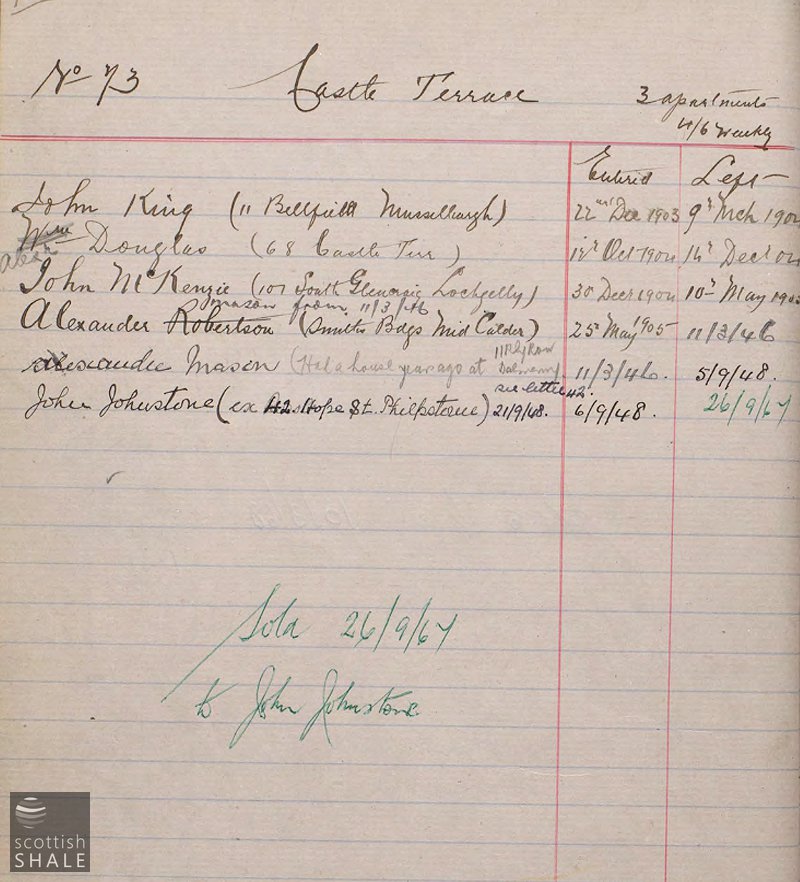 No 73 Castle Terrace 3 apartments
4/6 Weekly
Entered Left
John King (11 Bellfield Musselburgh) 22nd Dec 1903 9th Mch 1904
Wm Douglas (68 Castle Terr) Oct 1904 14th Decr 04
Alexr
John McKenzie (107 South Lochgelly) 30 Decr 1904 10th May 1905
mason from 11/3/46
Alexander Robertson (Smiths Bdgs Mid Calder) 25th May 1905 11/3/46
11 Rly Row
Alexander Mason (Had a house years ago at Dalmeny. 11/3/46. 5/9/48.
see letter
John Johnstone (ex 42 Hope St. Philpstoune) 21/9/48. 6/9/48. 26/9/67
Sold 26/9/67
to John Johnstone
scottish
SHALE